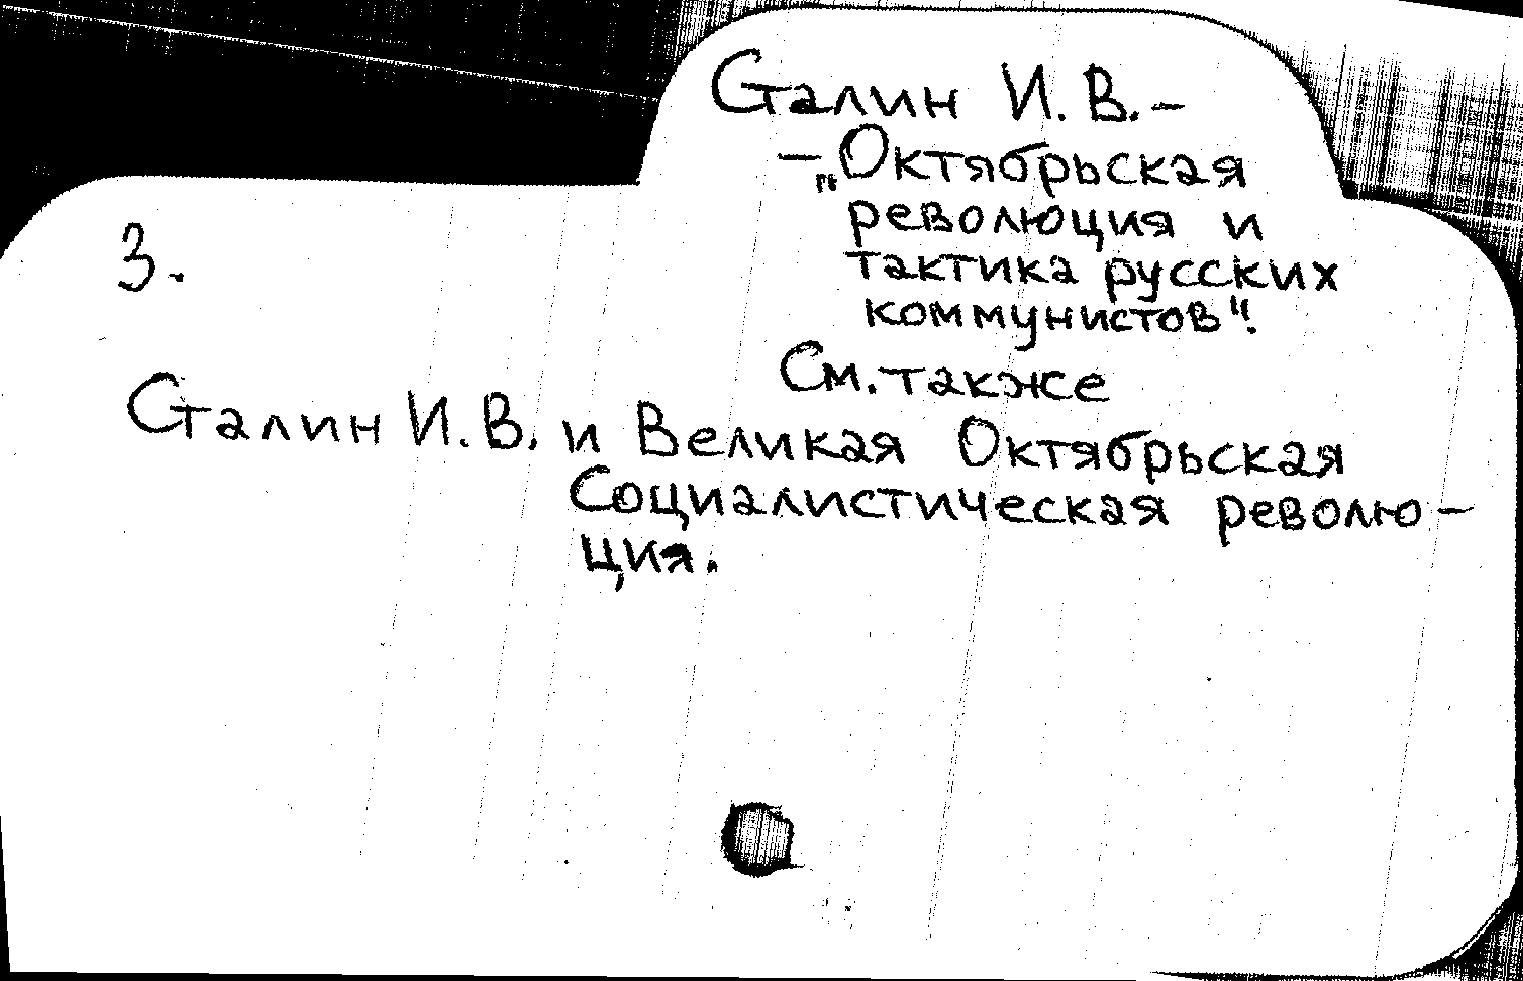 Сталин И.В. –
– „Октябрьская
революция и
тактика русских
коммунистов".
3.
См. также
Сталин И.В. и Великая Октябрьская
Социалистическая револю-
ция.